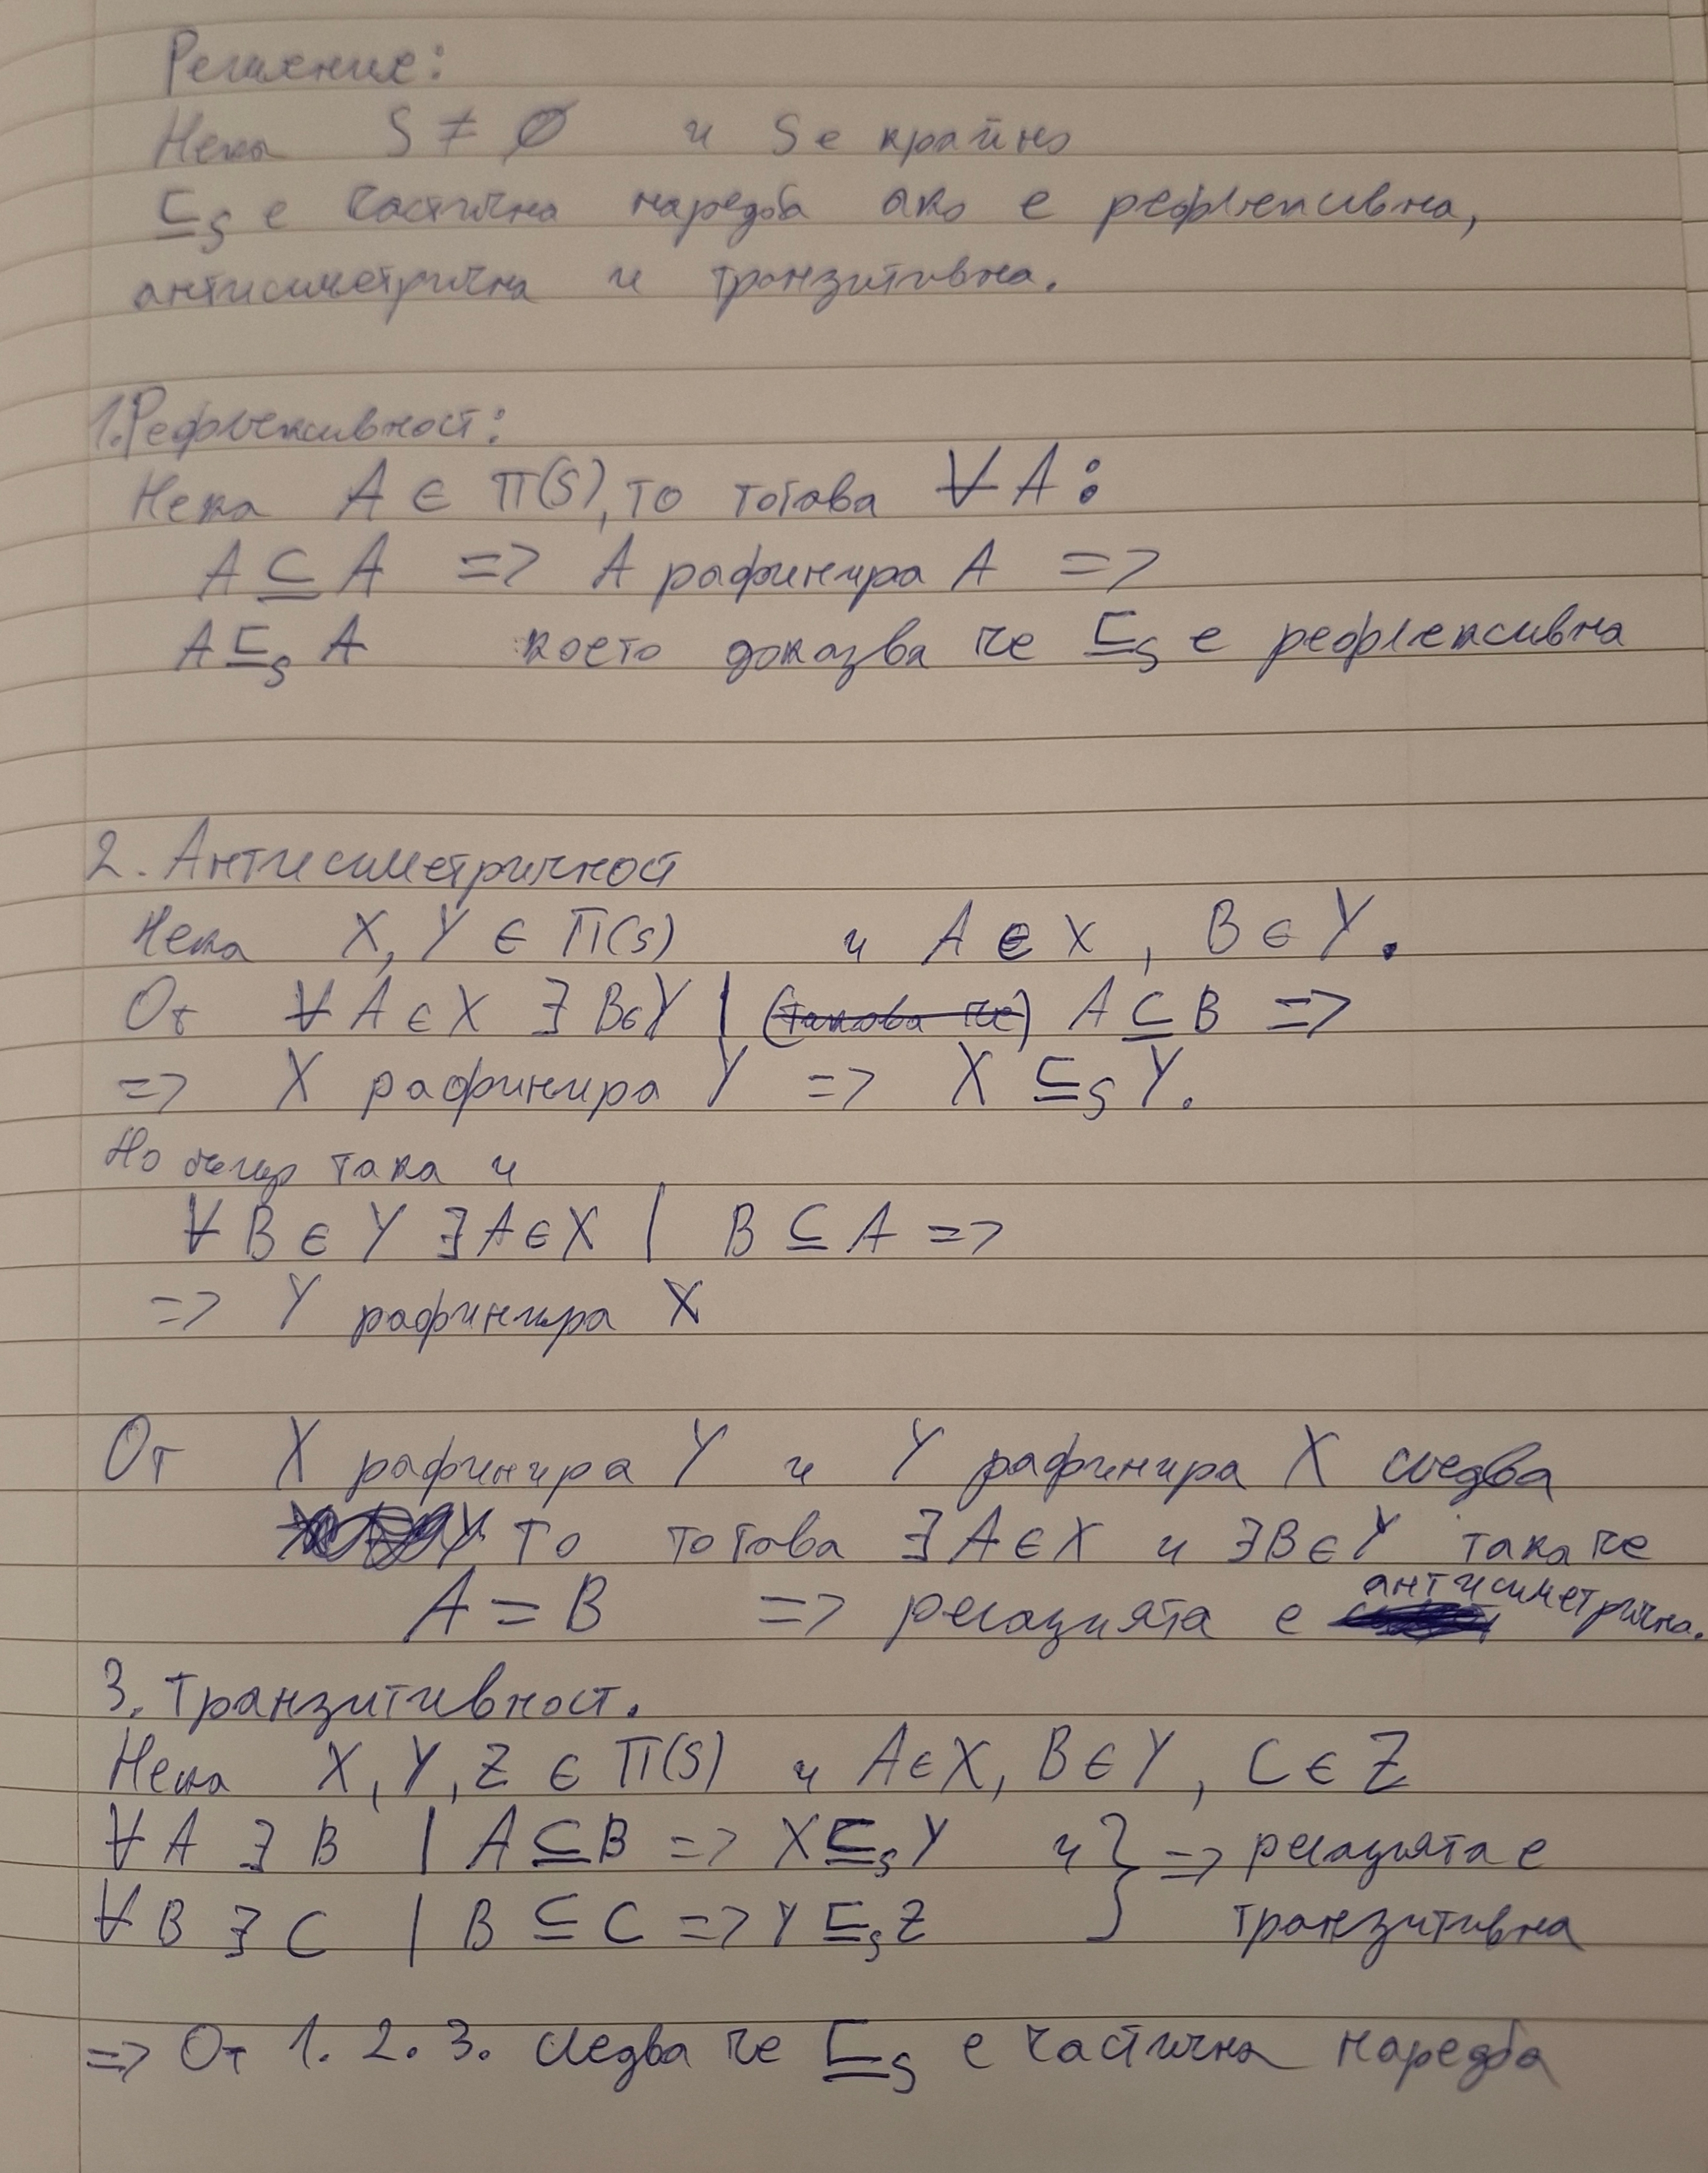 Решение:
Нека S ≠ ∅ и S е крайно
⊑ₛ е частична наредба ако е рефлексивна,
антисиметрична и транзитивна.
1. Рефлексивност:
Нека A ∈ Π(S), то тогава ∀A:
A ⊆ A => A рафинира A =>
A ⊑ₛ A което доказва че ⊑ₛ е рефлексивна
2. Антисиметричност
Нека X, Y ∈ Π(S) и A ∈ X, B ∈ Y.
От ∀A ∈ X ∃ B∈Y | (такова че) A ⊆ B =>
=> X рафинира Y => X ⊑ₛ Y.
Но също така и
∀ B ∈ Y ∃ A ∈ X | B ⊆ A =>
=> Y рафинира X
От X рафинира Y и Y рафинира X следва
то тогава ∃ A ∈ X и ∃B ∈ Y така че
A = B => релацията е антисиметрична.
3. Транзитивност.
Нека X, Y, Z ∈ Π(S) и A∈X, B∈Y, C∈Z
∀ A ∃ B | A ⊆ B => X ⊑ₛ Y и } => релацията е
∀ B ∃ C | B ⊆ C => Y ⊑ₛ Z транзитивна
=> От 1. 2. 3. следва че ⊑ₛ е частична наредба